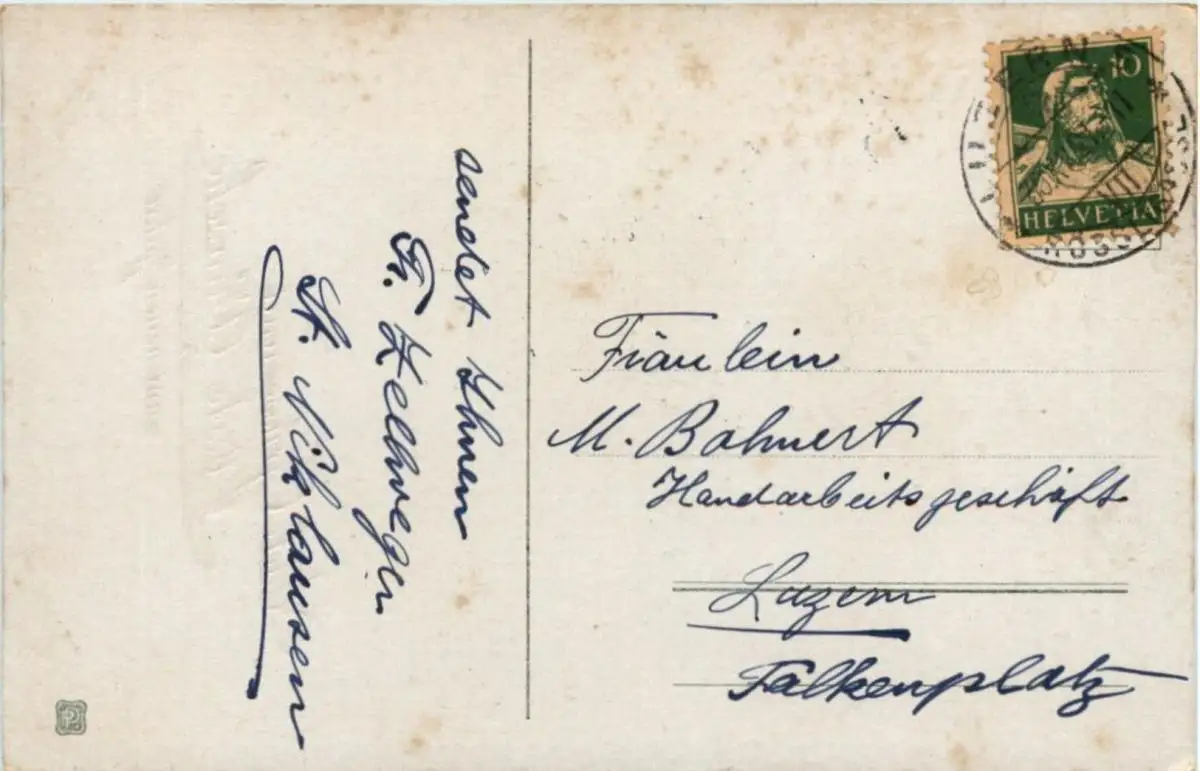 sendet Ihnen
Fr. Zellweger
St. Niklausen
10
HELVETIA
LUZERN
Fräulein
M. Bohnert
Handarbeitsgeschäft
Luzern
Falkenplatz